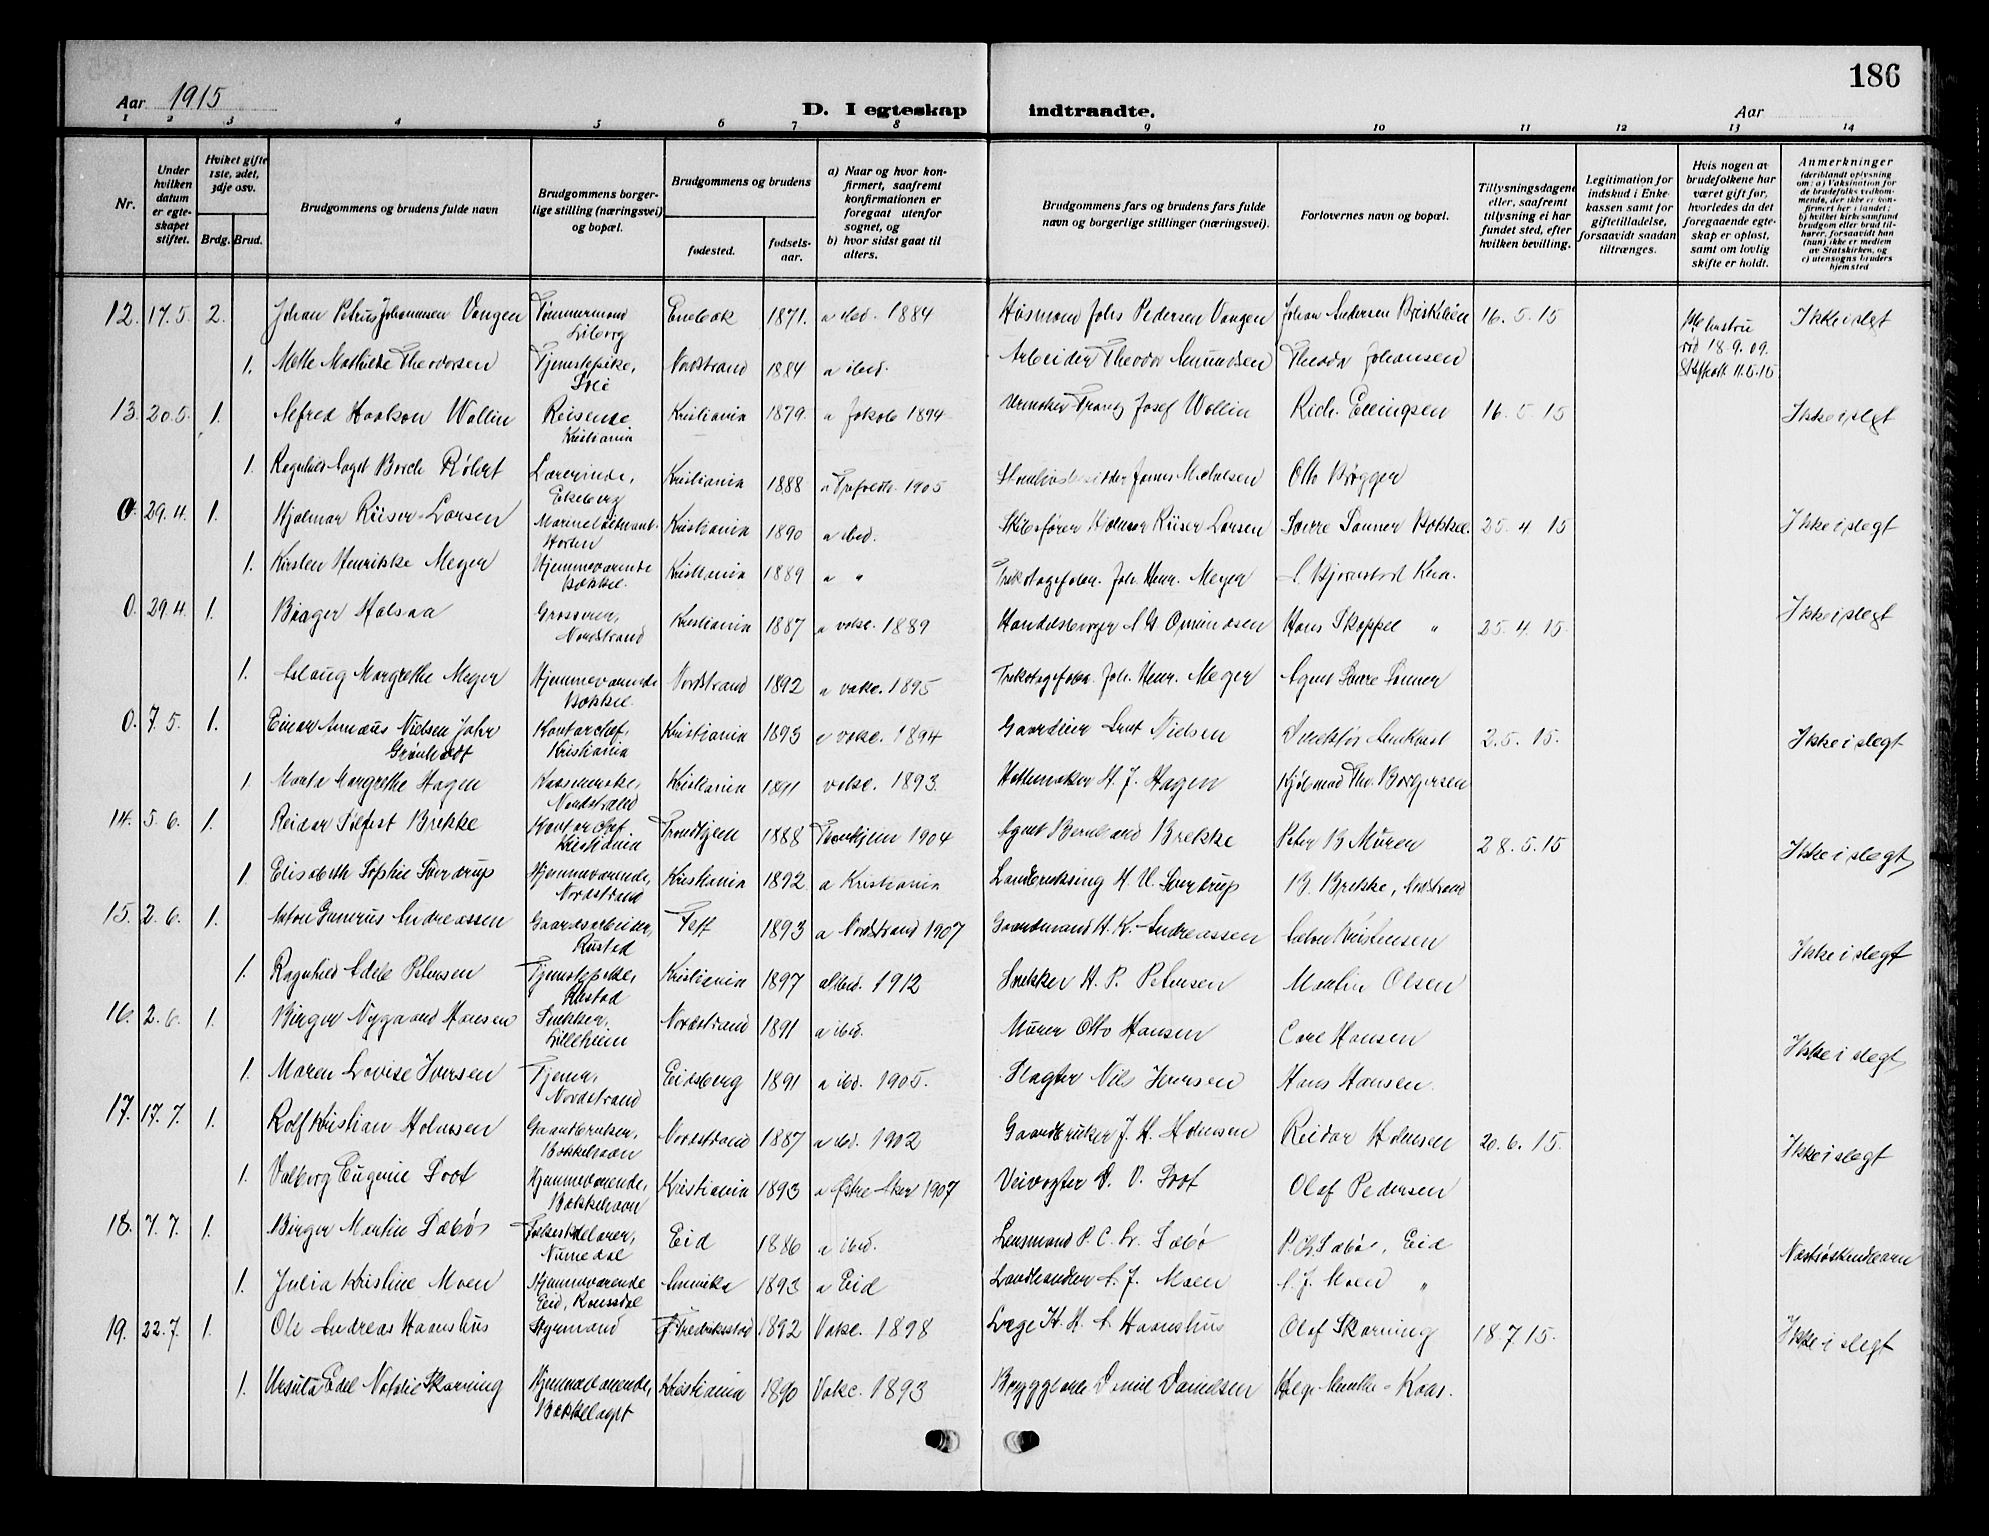 186
Aar 1915
D. I egteskap indtraadte.
Aar
1 2 3 4 5 6 7 8 9 10 11 12 13 14
Nr.
Under hvilken datum er egteskapet stiftet.
Hvilket gifte 1ste, 2det, 3dje osv.
Brdg. Brud.
Brudgommens og brudens fulde navn
Brudgommens borgerlige stilling (næringsvei) og bopæl.
Brudgommens og brudens
fødested.
fødselsaar.
a) Naar og hvor konfirmert, saafremt konfirmationen er foregaat utenfor sognet, og
b) hvor sidst gaat til alters.
Brudgommens fars og brudens fars fulde navn og borgerlige stillinger (næringsvei).
Forlovernes navn og bopæl.
Tillysningsdagene eller, saafremt tillysning ei har fundet sted, efter hvilken bevilling.
Legitimation for indskud i Enkekassen samt for giftetilladelse, forsaavidt saadan tiltrænges.
Hvis nogen av brudefolkene har været gift før, hvorledes da det foregaaende egteskap er opløst, samt om lovlig skifte er holdt.
Anmerkninger (deriblandt oplysning om: a) Vaksination for de brudefolks vedkommende, der ikke er konfirmert her i landet; b) hvilket kirkesamfund brudgom eller brud tilhører, forsaavidt han (hun) ikke er medlem av Statskirken, og c) utensogns bruders hjemsted
12. 17.5. 2. Johan Petrus Johannesen Vangen Tømmermand Enebak 1871. a ibd. 1884 Husmand Johs Pedersen Vangen Johan Andersen 16.5.15 Ikke i slegt
1. Mette Mathilde Theodorsen Tjenestepike, Nordstrand 1884 a ibid. Arbeider Theodor Amundsen Theodor Johansen død 18.9.09.
13. 20.5. 1. Alfred Haakon Wollin Reisende Kristiania Kristiania 1879. a Jakob 1894 Urmaker Franz Josef Wollin Rich. Ellingsen 16.5.15 Ikke i slegt
1. Ragnhild Aagot Borch Lærerinde, Ekeberg Kristiania 1888 1905 Otto Brøgger
0. 29.4. 1. Hjalmar Riiser-Larsen Horten Kristiania 1890 a ibid. Skibsfører Hjalmar Riiser Larsen Sverre Sanner Bækkel. 25.4.15 Ikke i slegt
1. Kirsten Henrikke Meyer Hjemmeværende Bækkel. Kristiania 1889 a " Trikotagefabr. Joh. Henr. Meyer
0. 29.4. 1. Grosserer, Nordstrand Kristiania 1887 a vakc. 1889 Hans Skappel " 25.4.15. Ikke i slegt
1. Aslaug Margrethe Meyer Hjemmeværende Bækkel. Nordstrand 1892 a vakc. 1895 Trikotagefabr. Joh. Henr. Meyer Agnes Sverre Sanner
0. 7.5. 1. Einar Nielsen Jahr Kontorchef, Kristiania Kristiania 1893 a vakc. 1894 Gaardeier Nielsen 2.5.15. Ikke i slegt
1. Marta Margrethe Hagen Nordstrand Kristiania 1891 vakc. 1893. Hattemaker H. J. Hagen Kjøbmand Thv. Borgersen
14. 5.6. 1. Reidar Brekke Kontorchef Kristiania Trondhjem 1888 Trondhjem 1904 Agent Brekke Peter B Muren 28.5.15 Ikke i slegt
1. Elisabeth Sophie Sverdrup Hjemmeværende, Nordstrand Kristiania 1892 a Kristiania H. U. Sverdrup B. Brekke, Nordstrand
15. 2.6. 1. Anton Gunerus Andreassen Gaardsarbeider, Rustad 1893 a Nordstrand 1907 Gaardmand H. K. Andreassen Anton Kristensen Ikke i slegt
1. Ragnhild Adele Petersen Tjenestepike, Rustad Kristiania 1897 a ibid. 1912 Snekker H. P. Petersen Martin Olsen
16. 2.6. 1. Birger Nygaard Hansen Snekker, Lilleheim Nordstrand 1891 a ibid. Murer Otto Hansen Carl Hansen Ikke i slegt
1. Maren Lovise Iversen Tjener, Nordstrand Eidsberg 1891 a ibd. 1905. Slagter Nils Iversen Hans Hansen.
17. 17.7. 1. Rolf Kristian Holmsen Gaardbruker, Nordstrand 1887 a ibd. 1902 Gaardbruker J. H. Holmsen Reidar Holmsen 20.6.15. Ikke i slegt
1. Valborg Eugenie Soot Hjemmeværende, Kristiania 1893 a Østre Aker 1907 Veivogter Soot Olaf Pedersen
18. 7.7. 1. Birger Martin Sæbø Numedal Eid 1886 a ibid. Lensmand P. C. Sæbø P. Ch. Sæbø, Eid Næstsøskendebarn
1. Julia Kristine Moen Hjemmeværende Eid, Romsdal 1893 a Eid Landhandler A. J. Moen A. J. Moen "
19. 22.7. 1. Ole Andreas Haanshus Styrmand Fredriksstad 1892 Vakc. 1898 Læge H. H. A. Haanshus Olaf Skarning 18.7.15. Ikke i slegt
1. Ursula Edel Natalie Skarning Hjemmeværende, Bækkelaget Kristiania 1890 Vakc. 1893 Daniel Danielsen Helge Munthe-Kaas.